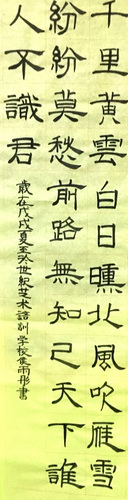 千里黄雲白日曛北風吹雁雪
紛紛莫愁前路無知己天下誰
人不識君
歲在戊戌夏於世紀术訓学校侯雨彤書